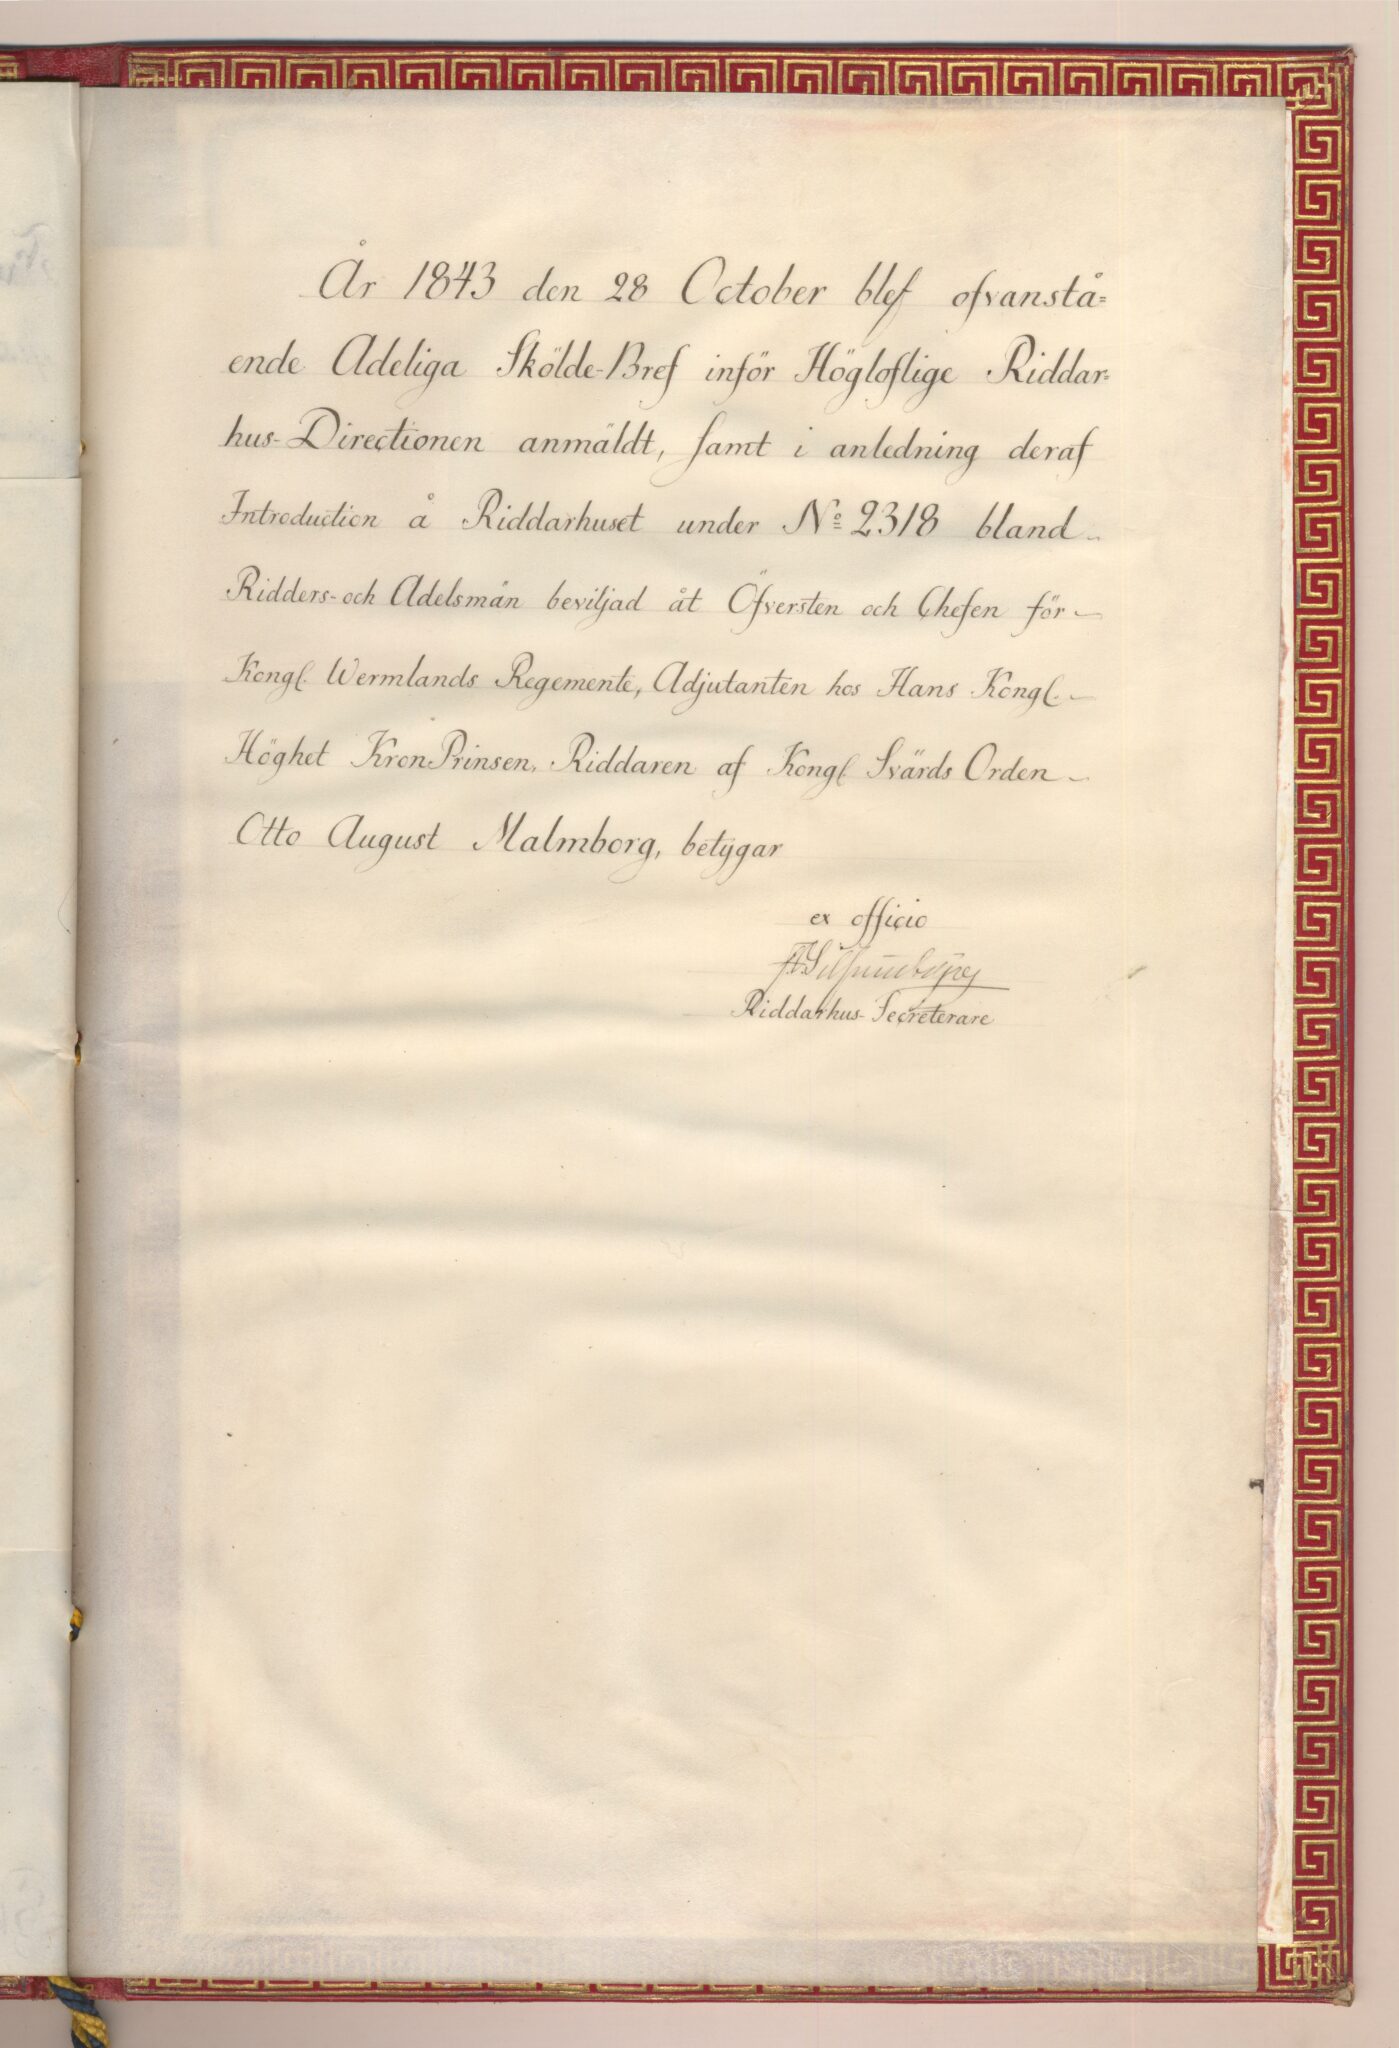 År 1843 den 28 October blef ofvanstå=
ende Adeliga Skölde-Bref inför Högloflige Riddar=
hus-Directionen anmäldt, samt i anledning deraf
Introduction å Riddarhuset under Nº 2318 bland
Ridders- och Adelsmän beviljad åt Öfversten och Chefen för
Kongl. Wermlands Regemente, Adjutanten hos Hans Kongl.
Höghet KronPrinsen, Riddaren af Kongl. Svärds Orden
Otto August Malmborg, betygar
ex officio
Riddarhus-Secreterare